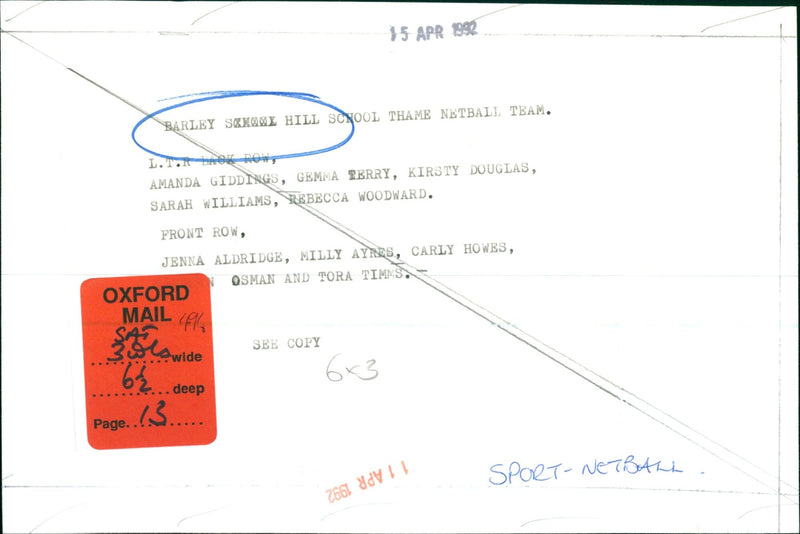 15 APR 1992
BARLEY SCHOOL HILL SCHOOL THAME NETBALL TEAM.
L.T.R BACK ROW,
AMANDA GIDDINGS, GEMMA TERRY, KIRSTY DOUGLAS,
SARAH WILLIAMS, REBECCA WOODWARD.
FRONT ROW,
JENNA ALDRIDGE, MILLY AYRES, CARLY HOWES,
OSMAN AND TORA TIMMS.
OXFORD
MAIL
SAT
3 cols wide
6½ deep
Page 13
SEE COPY
6x3
11 APR 1992
SPORT-NETBALL.